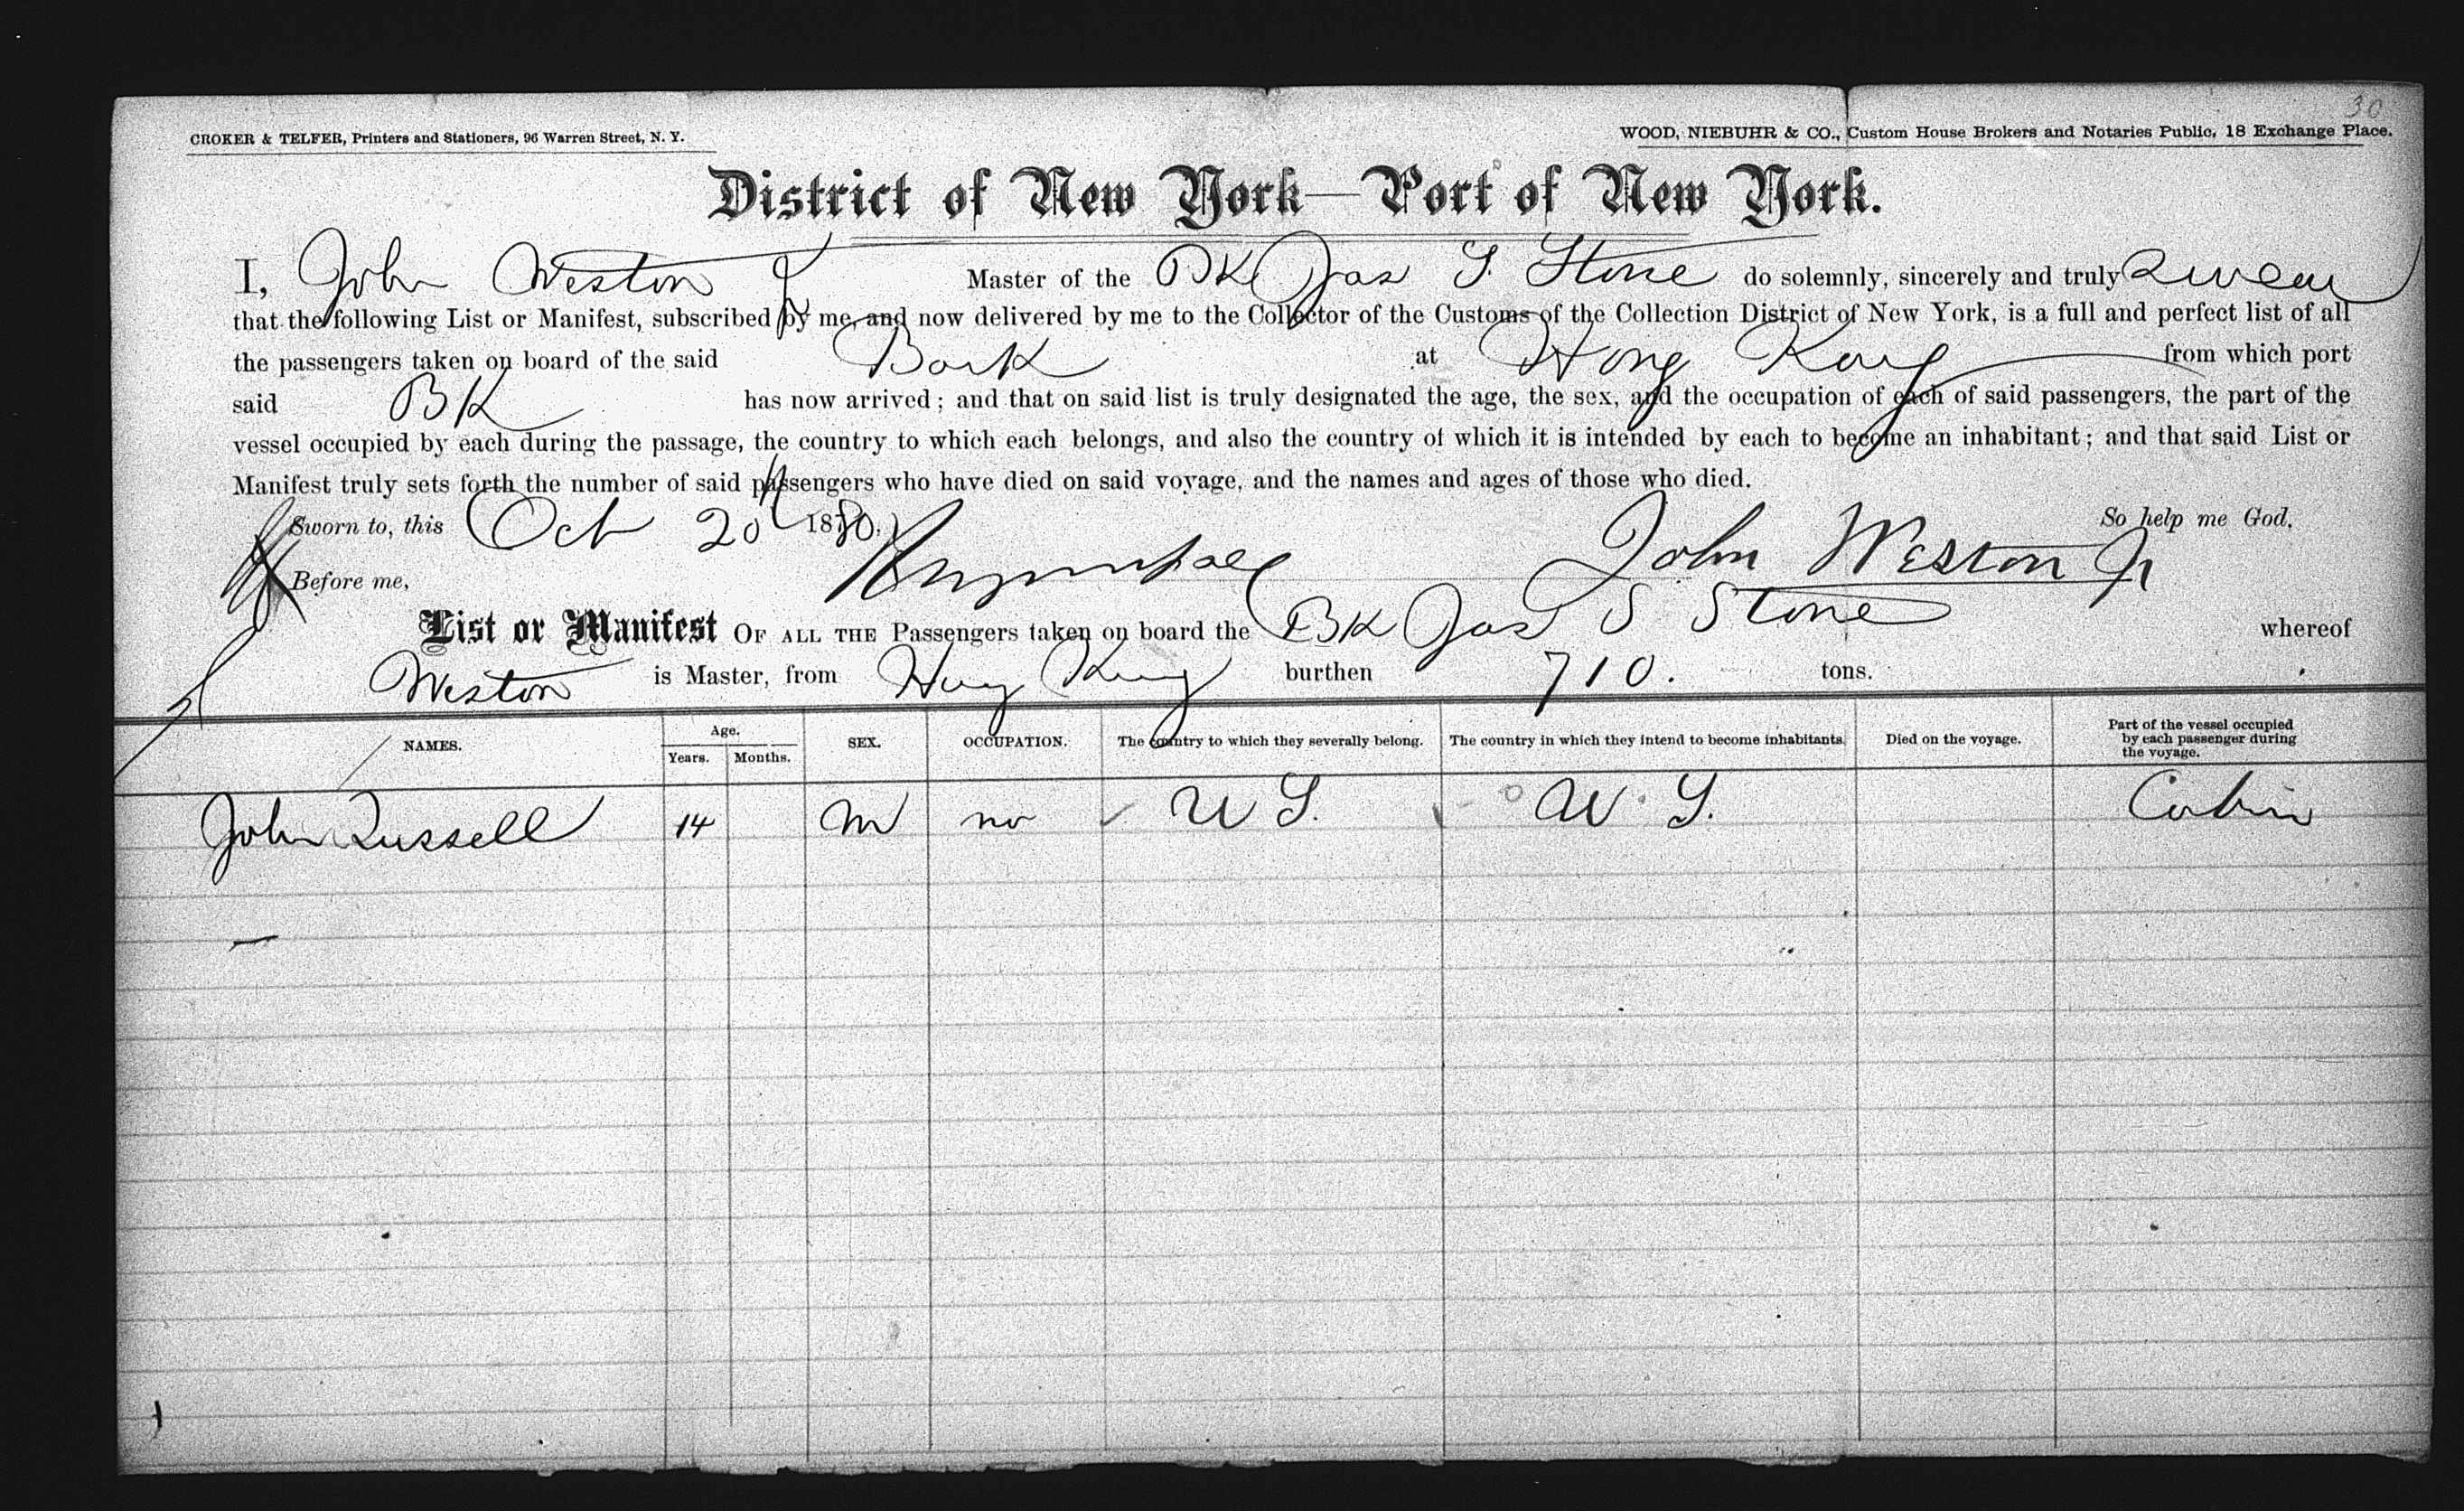 30
CROKER & TELFER, Printers and Stationers, 96 Warren Street, N. Y.
WOOD, NIEBUHR & CO., Custom House Brokers and Notaries Public, 18 Exchange Place.
District of New York—Port of New York.
I, John Weston Jr Master of the BK Jas S. Stone do solemnly, sincerely and truly Swear
that the following List or Manifest, subscribed by me, and now delivered by me to the Collector of the Customs of the Collection District of New York, is a full and perfect list of all
the passengers taken on board of the said Bark at Hong Kong from which port
said BK has now arrived; and that on said list is truly designated the age, the sex, and the occupation of each of said passengers, the part of the
vessel occupied by each during the passage, the country to which each belongs, and also the country of which it is intended by each to become an inhabitant; and that said List or
Manifest truly sets forth the number of said passengers who have died on said voyage, and the names and ages of those who died.
Sworn to, this Oct 20 1880. So help me God.
John Weston Jr
Before me,
List or Manifest OF ALL THE Passengers taken on board the BK Jas S Stone whereof
Weston is Master, from Hong Kong burthen 710. tons.
NAMES. Age. Years. Months. SEX. OCCUPATION. The country to which they severally belong. The country in which they intend to become inhabitants. Died on the voyage. Part of the vessel occupied by each passenger during the voyage.
John Russell 14 M no U S. U S. Cabin